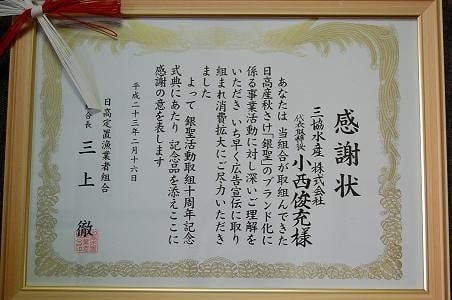 感謝状
三協水産 株式会社
代表取締役 小西俊充様
あなたは 当組合が取組んできた
日高産秋さけ「銀聖」のブランド化に
係る事業活動に対し深いご理解を
いただき いち早く広告宣伝に取り
組まれ消費拡大にご尽力いただき
ました
よって 銀聖活動取組十周年記念
式典にあたり 記念品を添えここに
感謝の意を表します
平成二十三年二月十六日
日高定置漁業者組合
合長 三上 徹